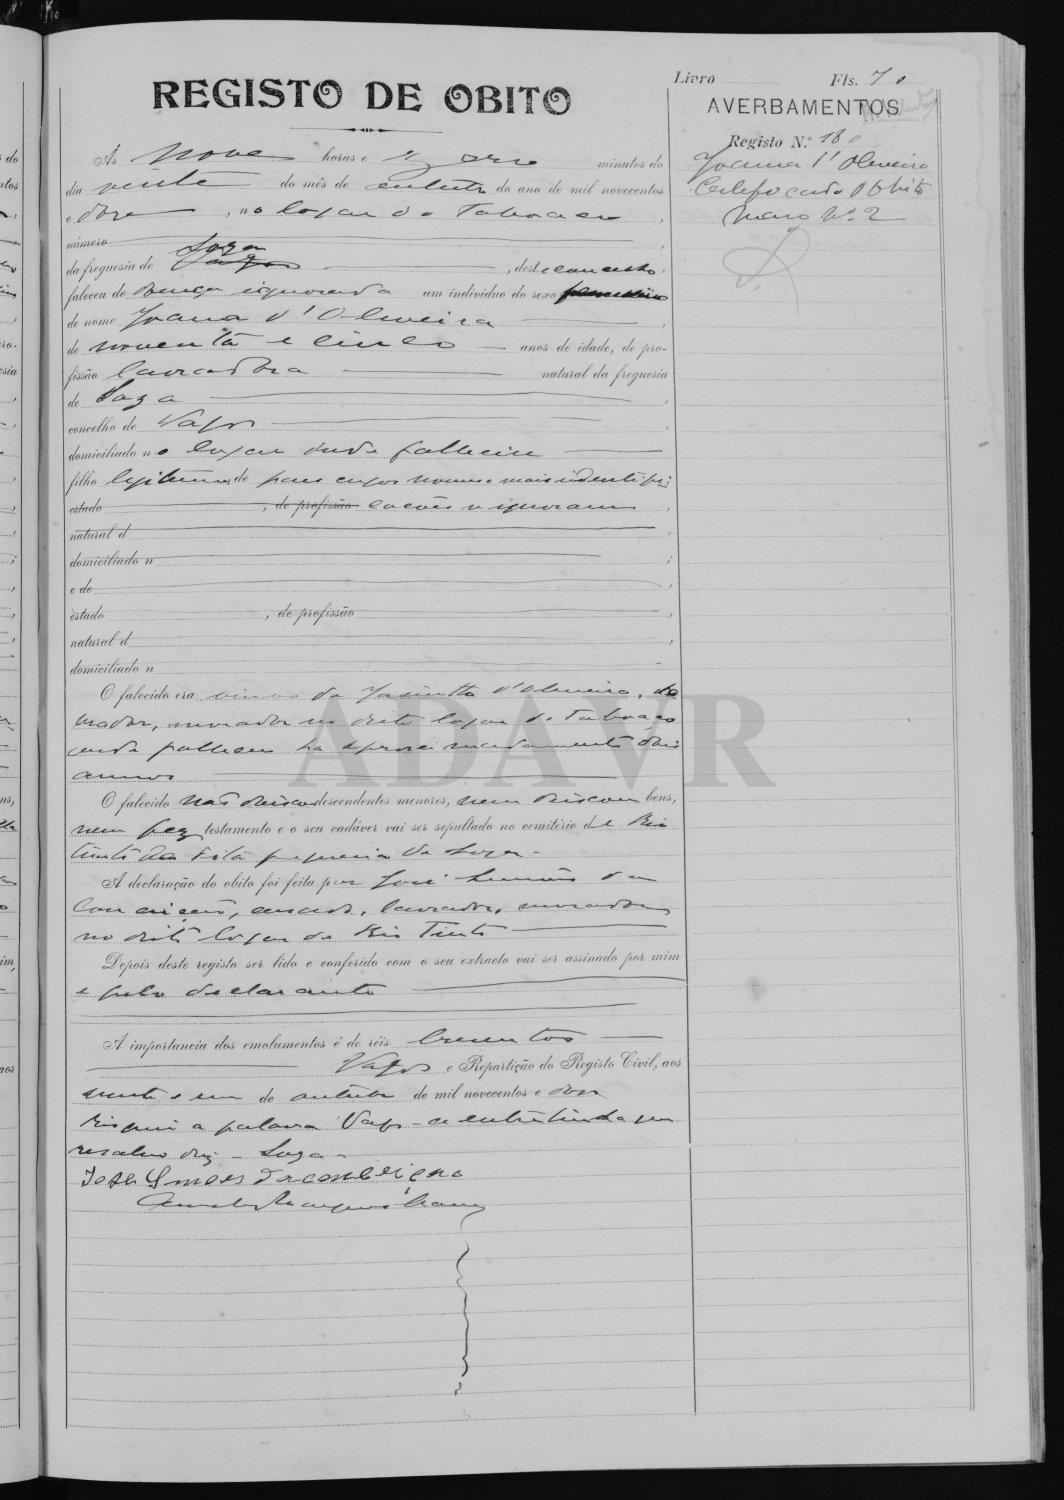 Livro Fls. 70
REGISTO DE OBITO
AVERBAMENTOS
Registo N.º 180
Joanna d'Oliveira
Certifocado Obito
Maço Nº 2
Ás nove horas e minutos do
dia vinte do mês de outubro do ano de mil novecentos
e doze, no logar do Taboaço,
número
Soza
da freguesia de Vagos, deste concelho,
faleceu de doença ignorada um individuo do sexo femenino
de nome Joana d'Oliveira,
de noventa e cinco anos de idade, de pro-
fissão lavradora natural da freguesia
de Soza,
concelho de Vagos,
domiciliado no logar onde falleceu
filho legitimo de paes cujos nomes e mais identifi
estado, de profissão cações se ignoram,
natural d,
domiciliado n;
e de,
estado, de profissão,
natural d,
domiciliado n
O falecido era viuva de Jacintho d'Oliveira, la
vrador, morador no dito logar do Taboaço
onde falleceu ha aproximadamente dois
annos
O falecido não deixou descendentes menores, nem deixou bens,
nem fez testamento e o seu cadáver vai ser sepultado no cemitério de Rio
tinto da dita freguesia de Soza.
A declaração do obito foi feita por José Simões da
Conceição, casado, lavrador, morador
no dito logar de Rio Tinto
Depois deste registo ser lido e conferido com o seu extracto vai ser assinado por mim
e pelo declarante
A importancia dos emolumentos é de réis trezentos
Vagos e Repartição do Registo Civil, aos
vinte e um de outubro de mil novecentos e doze
Risquei a palavra Vagos - a entrelinha que
resalvo diz - Soza -
Jose Simoes da conceiçao
ADAVR